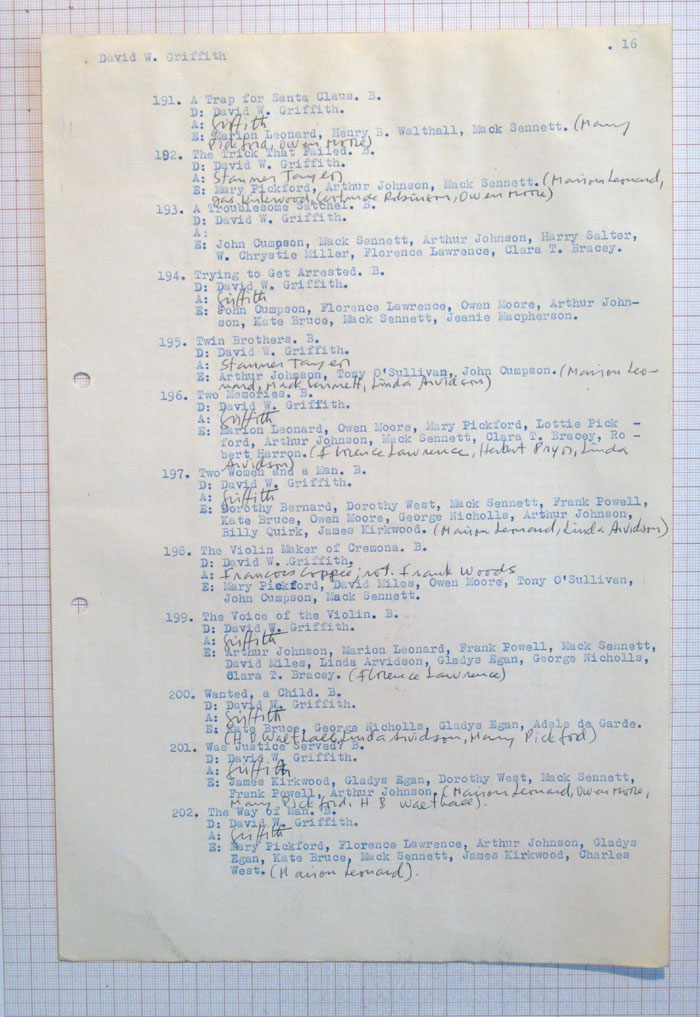 David W. Griffith
. 16
191. A Trap for Santa Claus. B.
D: David W. Griffith.
A: Griffith
E: Marion Leonard, Henry B. Walthall, Mack Sennett. (Mary
Pickford, Owen Moore)
192. The Trick That Failed. B.
D: David W. Griffith.
A: Stanner Tayler
E: Mary Pickford, Arthur Johnson, Mack Sennett. (Marion Leonard,
Jas. Kirkwood, Gertrude Robinson, Owen Moore)
193. A Troublesome Satchel. B.
D: David W. Griffith.
A:
E: John Cumpson, Mack Sennett, Arthur Johnson, Harry Salter,
W. Chrystie Miller, Florence Lawrence, Clara T. Bracey.
194. Trying to Get Arrested. B.
D: David W. Griffith.
A: Griffith
E: John Cumpson, Florence Lawrence, Owen Moore, Arthur John-
son, Kate Bruce, Mack Sennett, Jeanie Macpherson.
195. Twin Brothers. B.
D: David W. Griffith.
A: Stanner Tayler
E: Arthur Johnson, Tony O'Sullivan, John Cumpson. (Marion Leo-
nard, Mack Sennett, Linda Arvidson)
196. Two Memories. B.
D: David W. Griffith.
A: Griffith
E: Marion Leonard, Owen Moore, Mary Pickford, Lottie Pick -
ford, Arthur Johnson, Mack Sennett, Clara T. Bracey, Ro -
bert Harron. (Florence Lawrence, Herbert Pryor, Linda
Arvidson)
197. Two Women and a Man. B.
D: David W. Griffith.
A: Griffith
E: Dorothy Bernard, Dorothy West, Mack Sennett, Frank Powell,
Kate Bruce, Owen Moore, George Nicholls, Arthur Johnson,
Billy Quirk, James Kirkwood. (Marion Leonard, Linda Arvidson)
198. The Violin Maker of Cremona. B.
D: David W. Griffith.
A: Francois Coppée, rot. Frank Woods
E: Mary Pickford, David Miles, Owen Moore, Tony O'Sullivan,
John Cumpson, Mack Sennett.
199. The Voice of the Violin. B.
D: David W. Griffith.
A: Griffith
E: Arthur Johnson, Marion Leonard, Frank Powell, Mack Sennett,
David Miles, Linda Arvidson, Gladys Egan, George Nicholls,
Clara T. Bracey. (Florence Lawrence)
200. Wanted, a Child. B.
D: David W. Griffith.
A: Griffith
E: Kate Bruce, George Nicholls, Gladys Egan, Adele de Garde.
(H B Walthall, Linda Arvidson, Mary Pickford)
201. Was Justice Served? B.
D: David W. Griffith.
A: Griffith
E: James Kirkwood, Gladys Egan, Dorothy West, Mack Sennett,
Frank Powell, Arthur Johnson. (Marion Leonard, Owen Moore,
Mary Pickford, H B Walthall).
202. The Way of Man. B.
D: David W. Griffith.
A: Griffith
E: Mary Pickford, Florence Lawrence, Arthur Johnson, Gladys
Egan, Kate Bruce, Mack Sennett, James Kirkwood, Charles
West. (Marion Leonard).